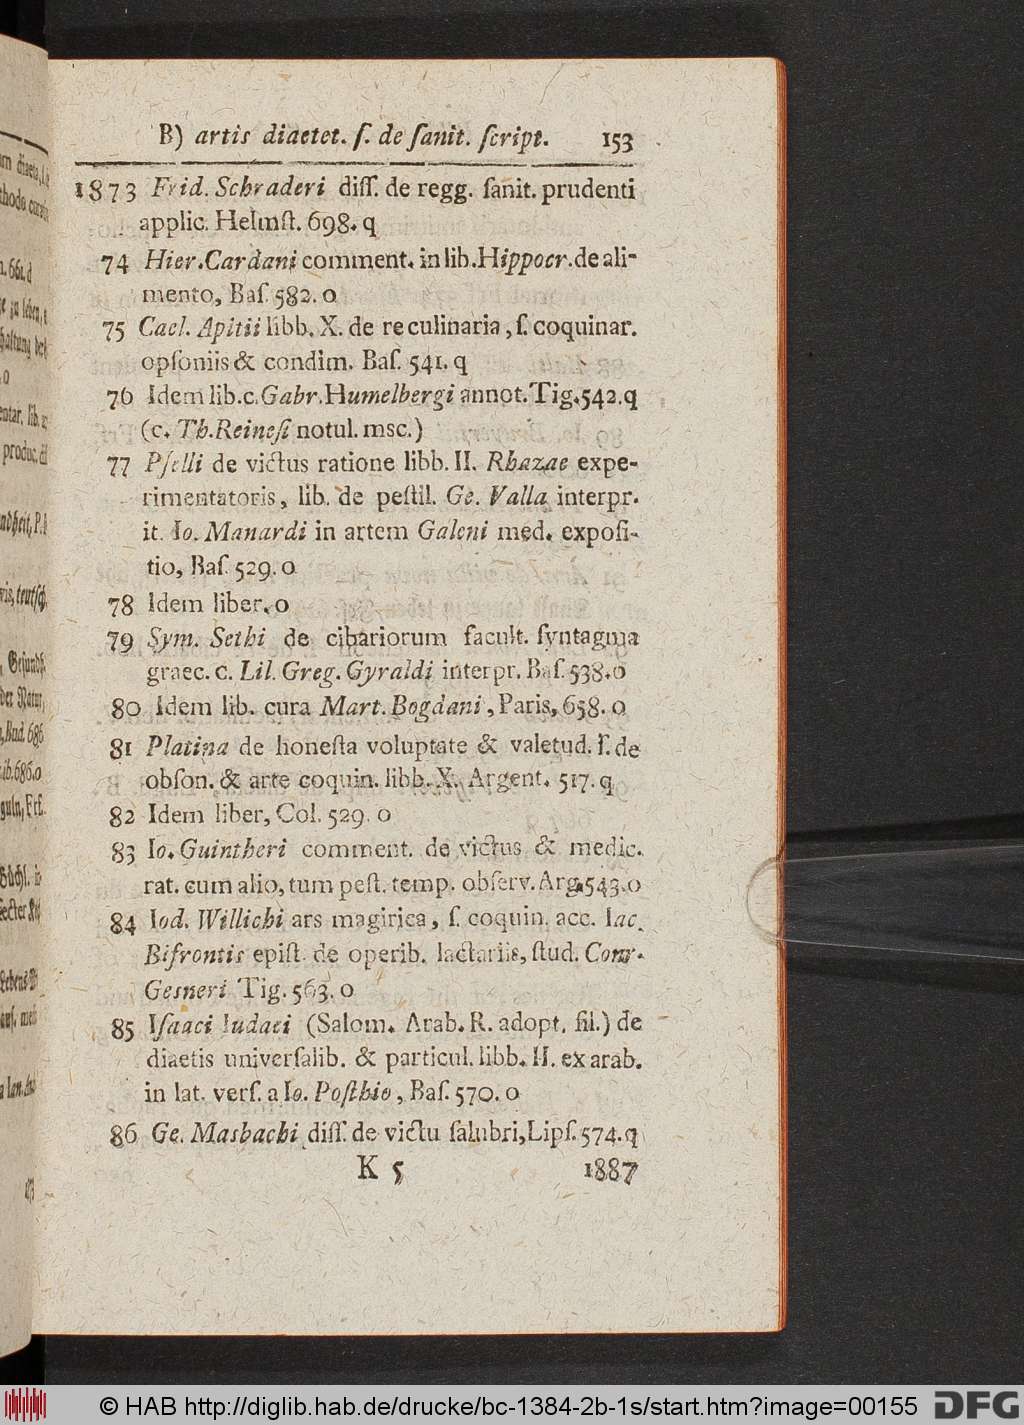 B) artis diaetet. ſ. de ſanit. ſcript. 153
1873 Frid. Schraderi diſſ. de regg. ſanit. prudenti
applic. Helmſt. 698. q
74 Hier. Cardani comment. in lib. Hippocr. de ali-
mento, Baſ. 582. o
75 Cael. Apitii libb. X. de re culinaria, ſ. coquinar.
opſoniis & condim. Baſ. 541. q
76 Idem lib. c. Gabr. Humelbergi annot. Tig. 542. q
(c. Th. Reineſi notul. msc.)
77 Pſelli de victus ratione libb. II. Rhazae expe-
rimentatoris, lib. de peſtil. Ge. Valla interpr.
it. Io. Manardi in artem Galeni med. expoſi-
tio, Baſ. 529. o
78 Idem liber. o
79 Sym. Sethi de cibariorum facult. ſyntagma
graec. c. Lil. Greg. Gyraldi interpr. Baſ. 538. o
80 Idem lib. cura Mart. Bogdani, Paris, 658. o
81 Platina de honeſta voluptate & valetud. ſ. de
obſon. & arte coquin. libb. X. Argent. 517. q
82 Idem liber, Col. 529. o
83 Io. Guintheri comment. de victus & medic.
rat. cum alio, tum peſt. temp. obſerv. Arg. 543. o
84 Iod. Willichi ars magirica, ſ. coquin. acc. Iac.
Bifrontis epiſt. de operib. lactariis, ſtud. Conr.
Gesneri Tig. 563. o
85 Iſaaci Iudaei (Salom. Arab. R. adopt. fil.) de
diaetis univerſalib. & particul. libb. II. ex arab.
in lat. verſ. a Io. Poſthio, Baſ. 570. o
86 Ge. Masbachi diſſ. de victu ſalubri, Lipſ. 574. q
K 5 1887
© HAB http://diglib.hab.de/drucke/bc-1384-2b-1s/start.htm?image=00155 DFG